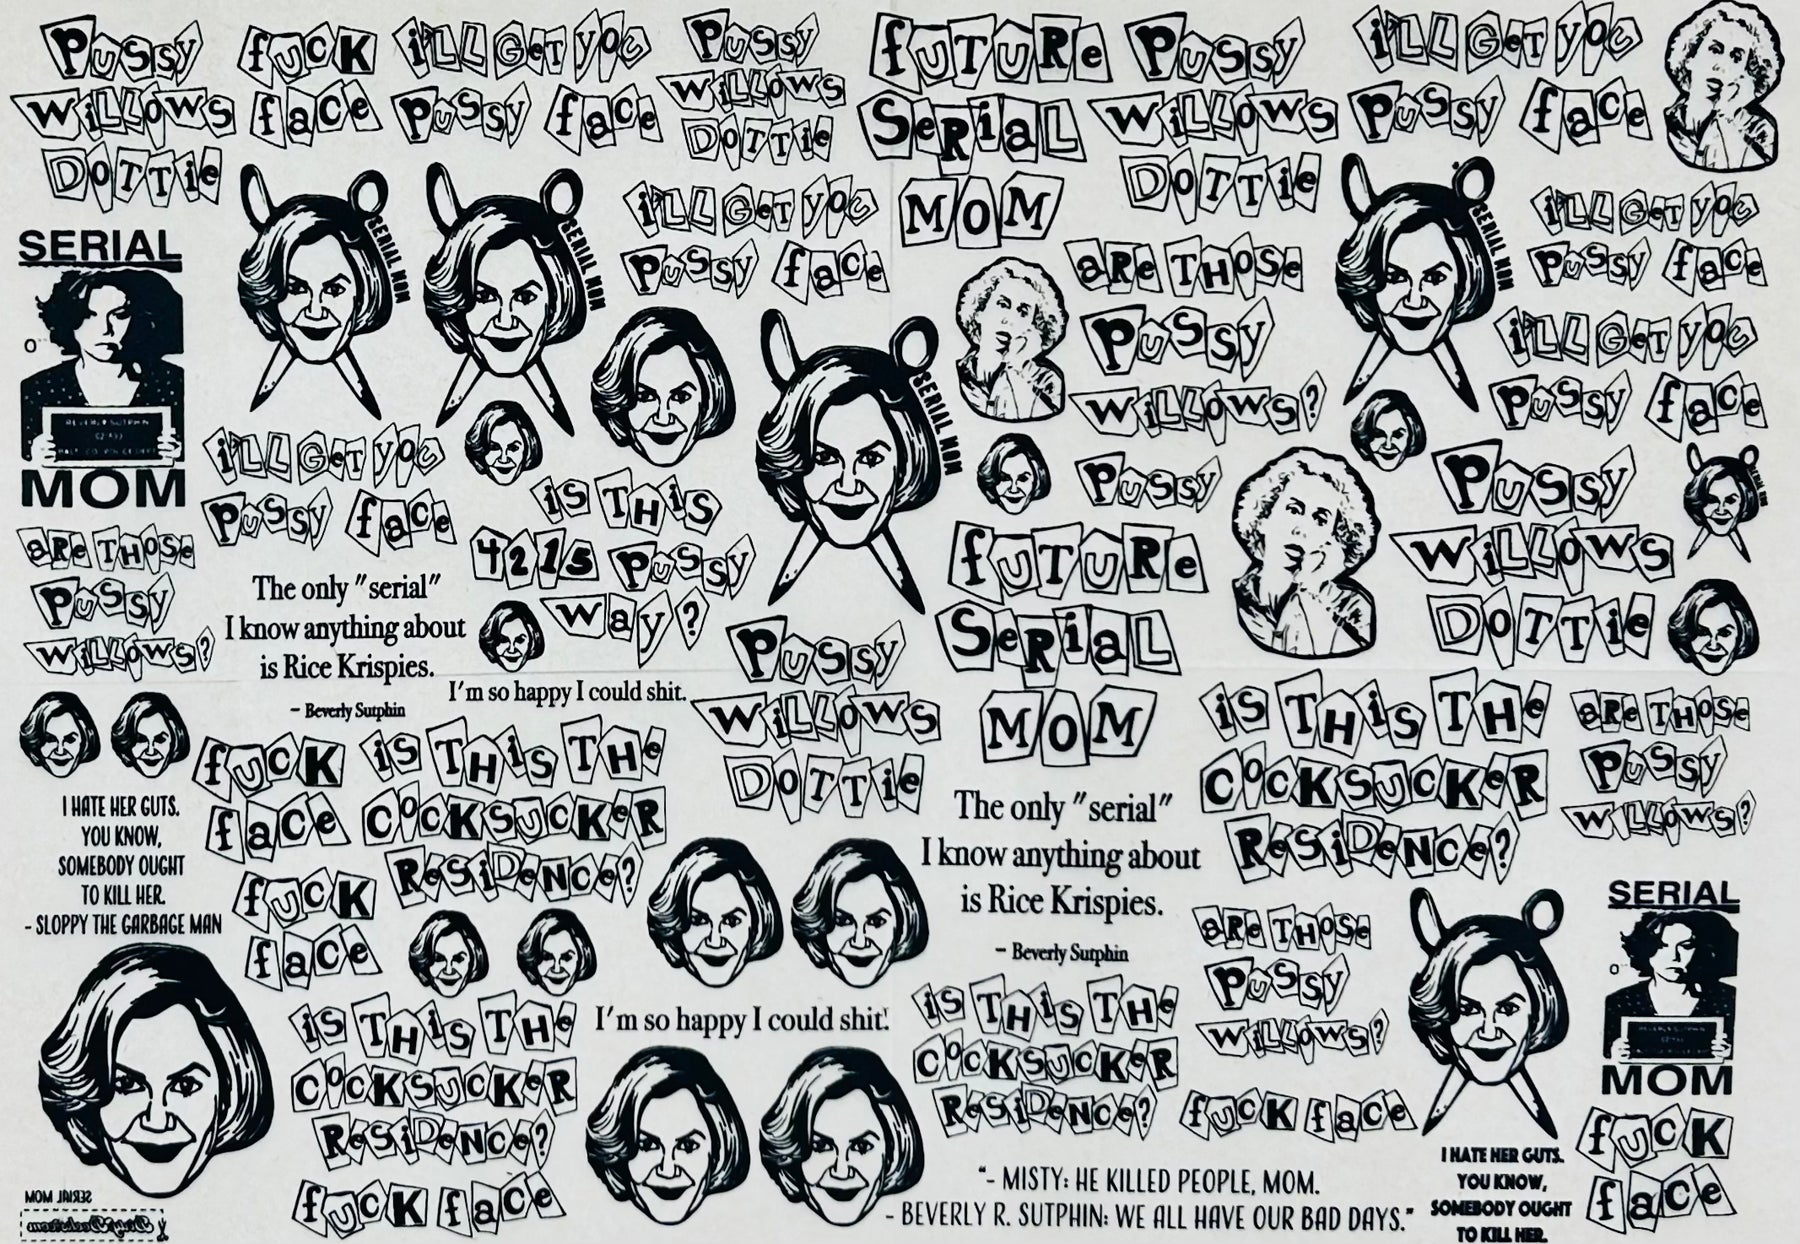 PUSSY
WILLOWS
DOTTIE
FUCK
FACE
I'LL GET YOU
PUSSY FACE
PUSSY
WILLOWS
DOTTIE
FUTURE
SERIAL
MOM
PUSSY
WILLOWS
DOTTIE
I'LL GET YOU
PUSSY FACE
SERIAL MOM
SERIAL MOM
I'LL GET YOU
PUSSY FACE
ARE THOSE
PUSSY
WILLOWS?
SERIAL MOM
I'LL GET YOU
PUSSY FACE
I'LL GET YOU
PUSSY FACE
SERIAL
BEVERLY SUTPHIN
MOM
SERIAL MOM
I'LL GET YOU
PUSSY FACE
IS THIS
4215 PUSSY
WAY?
PUSSY
FUTURE
SERIAL
MOM
PUSSY
WILLOWS
DOTTIE
ARE THOSE
PUSSY
WILLOWS?
The only "serial"
I know anything about
is Rice Krispies.
- Beverly Sutphin
I'm so happy I could shit.
PUSSY
WILLOWS
DOTTIE
IS THIS THE
COCKSUCKER
RESIDENCE?
ARE THOSE
PUSSY
WILLOWS?
I HATE HER GUTS.
YOU KNOW,
SOMEBODY OUGHT
TO KILL HER.
- SLOPPY THE GARBAGE MAN
FUCK
FACE
IS THIS THE
COCKSUCKER
RESIDENCE?
FUCK
FACE
The only "serial"
I know anything about
is Rice Krispies.
- Beverly Sutphin
ARE THOSE
PUSSY
WILLOWS?
SERIAL
BEVERLY SUTPHIN
MOM
IS THIS THE
COCKSUCKER
RESIDENCE?
FUCK FACE
I'm so happy I could shit.
IS THIS THE
COCKSUCKER
RESIDENCE?
FUCK FACE
FUCK
FACE
"- MISTY: HE KILLED PEOPLE, MOM.
- BEVERLY R. SUTPHIN: WE ALL HAVE OUR BAD DAYS."
I HATE HER GUTS.
YOU KNOW,
SOMEBODY OUGHT
TO KILL HER.
SERIAL MOM